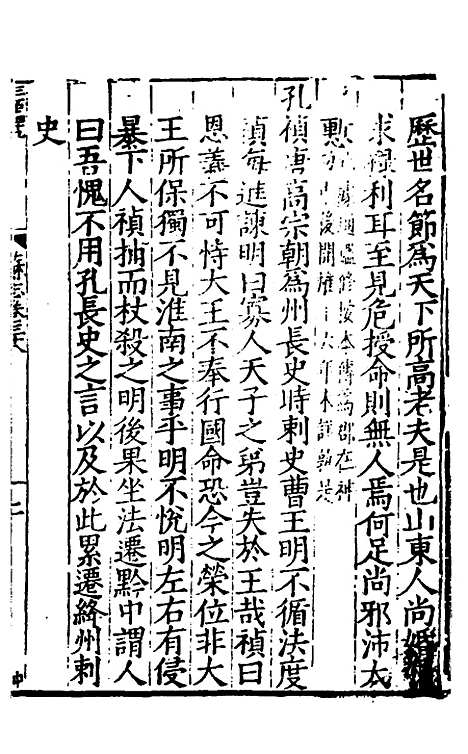 歷世名節爲天下所高老夫是也山東人尚婚
求祿利耳至見危授命則無人焉何足尚邪沛大
慙
孔禎唐高宗朝爲州長史時刺史曹王明不循法度
禎每進諫明曰寡人天子之弟豈失於王哉禎曰
恩義不可恃大王不奉行國命恐今之榮位非大
王所保獨不見淮南之事乎明不悅明左右有侵
暴下人禎拁而杖殺之明後果坐法遷黔中謂人
曰吾愧不用孔長史之言以及於此累遷絳州刺
史